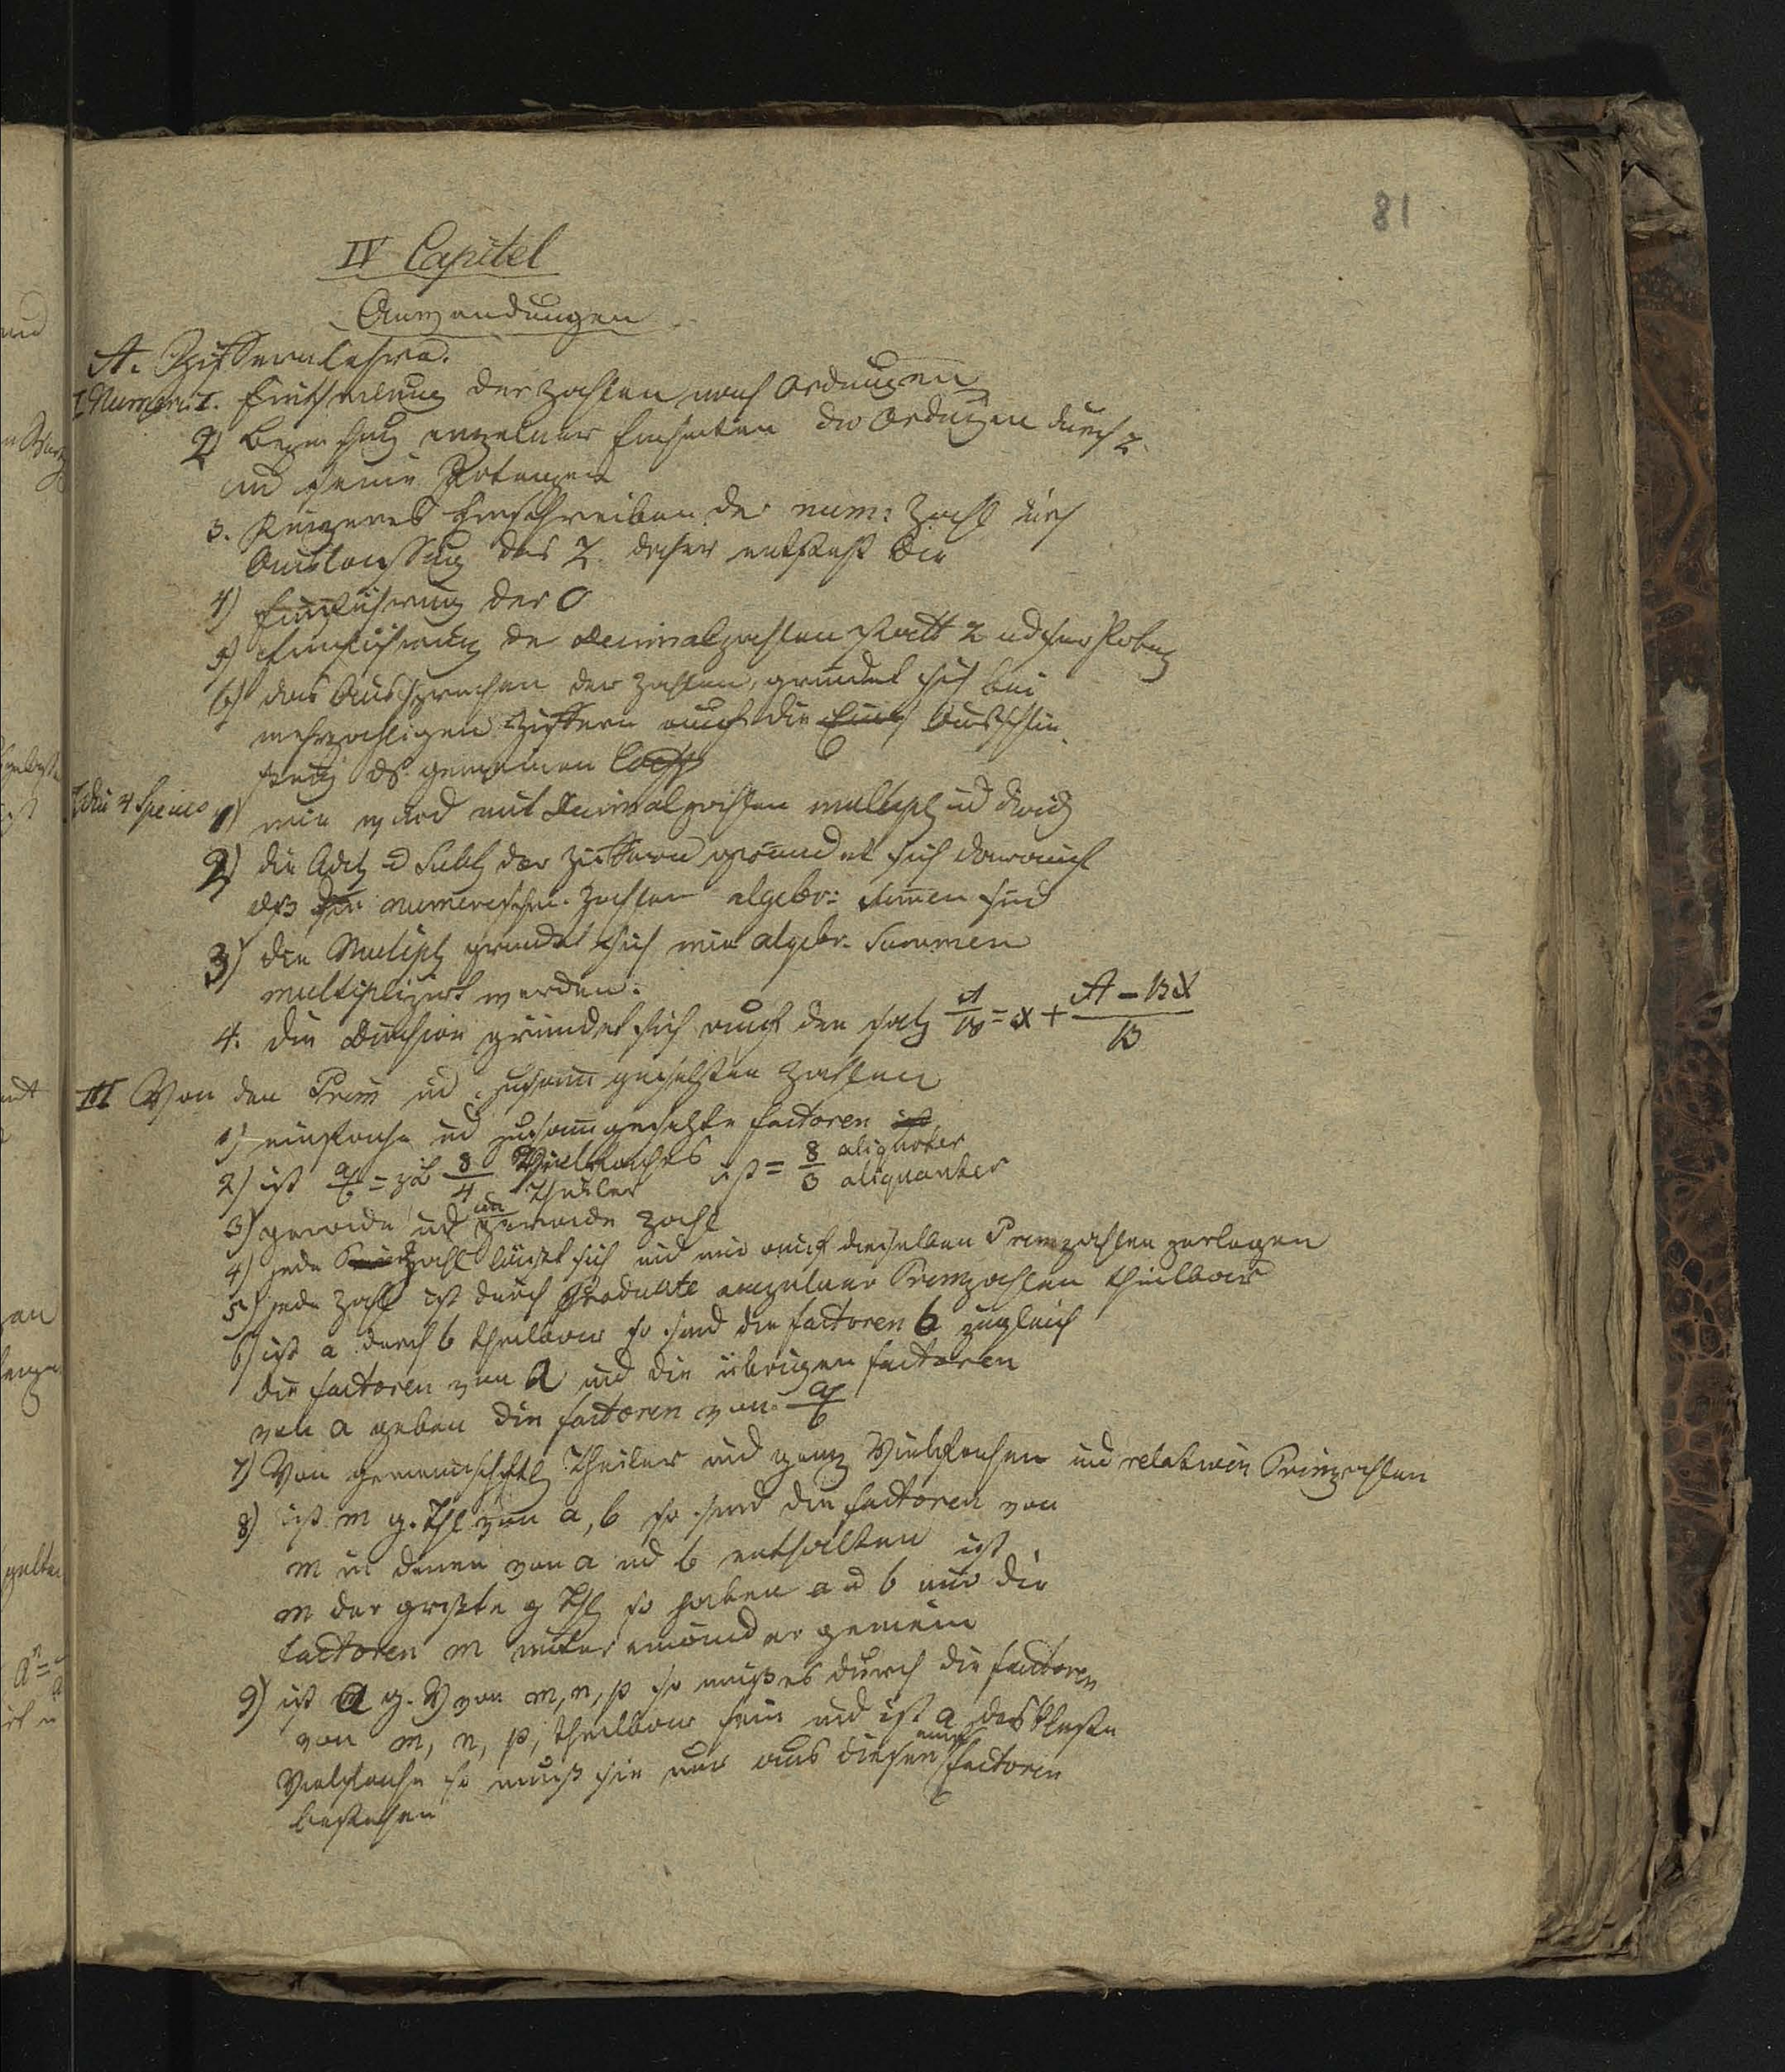 81
IV Capitel
Anwendungen
A. Ziffernlehre.
I Numerir: 1. Eintheilung der Zahlen nach Ordnungen
2) einzelner Einheiten der Ordnungen durch z.
und seine Potenzen
3. Kürzeres Hinschreiben der num: Zahl durch
Auslassung des Z. daher entsteht die
4) Einführung der 0
5) Einführung der Decimalzahlen statt z und sr Potenz
6) das Aussprechen der Zahlen, gründet sich bei
mehrzahligen Ziffern auch die
des gemeinen
II die 4 Species 1) wie wird mit Decimalzahlen multipl und divid
2) die Addit und Subtr der Ziffern gründet sich darauf
daß die numerischen Zahlen algebr: Summen sind
3) die Multipl gründet sich wie algebr. Summen
multiplizirt werden.
4. die Division gründet sich auf den Satz A/B = x + (A - Bx)/B
III Von den Prim und zusammgesetzten Zahlen
1) einfache und zusammgesetzte factoren ist
2) ist a/b = z.B. 8/4 Vielfaches Theiler ist = 8/3 aliquoter aliquanter
3) gerade und ungerade Zahl
4) jede Zahl läßt sich und nur auf dieselben Primzahlen zerlegen
5) jede Zahl ist durch Producte einzelner Primzahlen theilbar
6) ist a durch b theilbar so sind die factoren b zugleich
die factoren von a und die übrigen factoren
von a geben die factoren von a/b
7) Von gemeinschftl Theiler und ganz Vielfachen und relativen Primzahlen
8) ist m g. Thl von a, b so sind die factoren von
m in denen von a und b enthalten ist
m der größte g Thl so haben a u b nur die
factoren m unter einander gemein
9) ist a g. V von m, n, p so muß es durch die factoren
von m, n, p, theilbar sein und ist a das kleinste
Vielfache so muß sie nur aus diesen factoren
bestehen